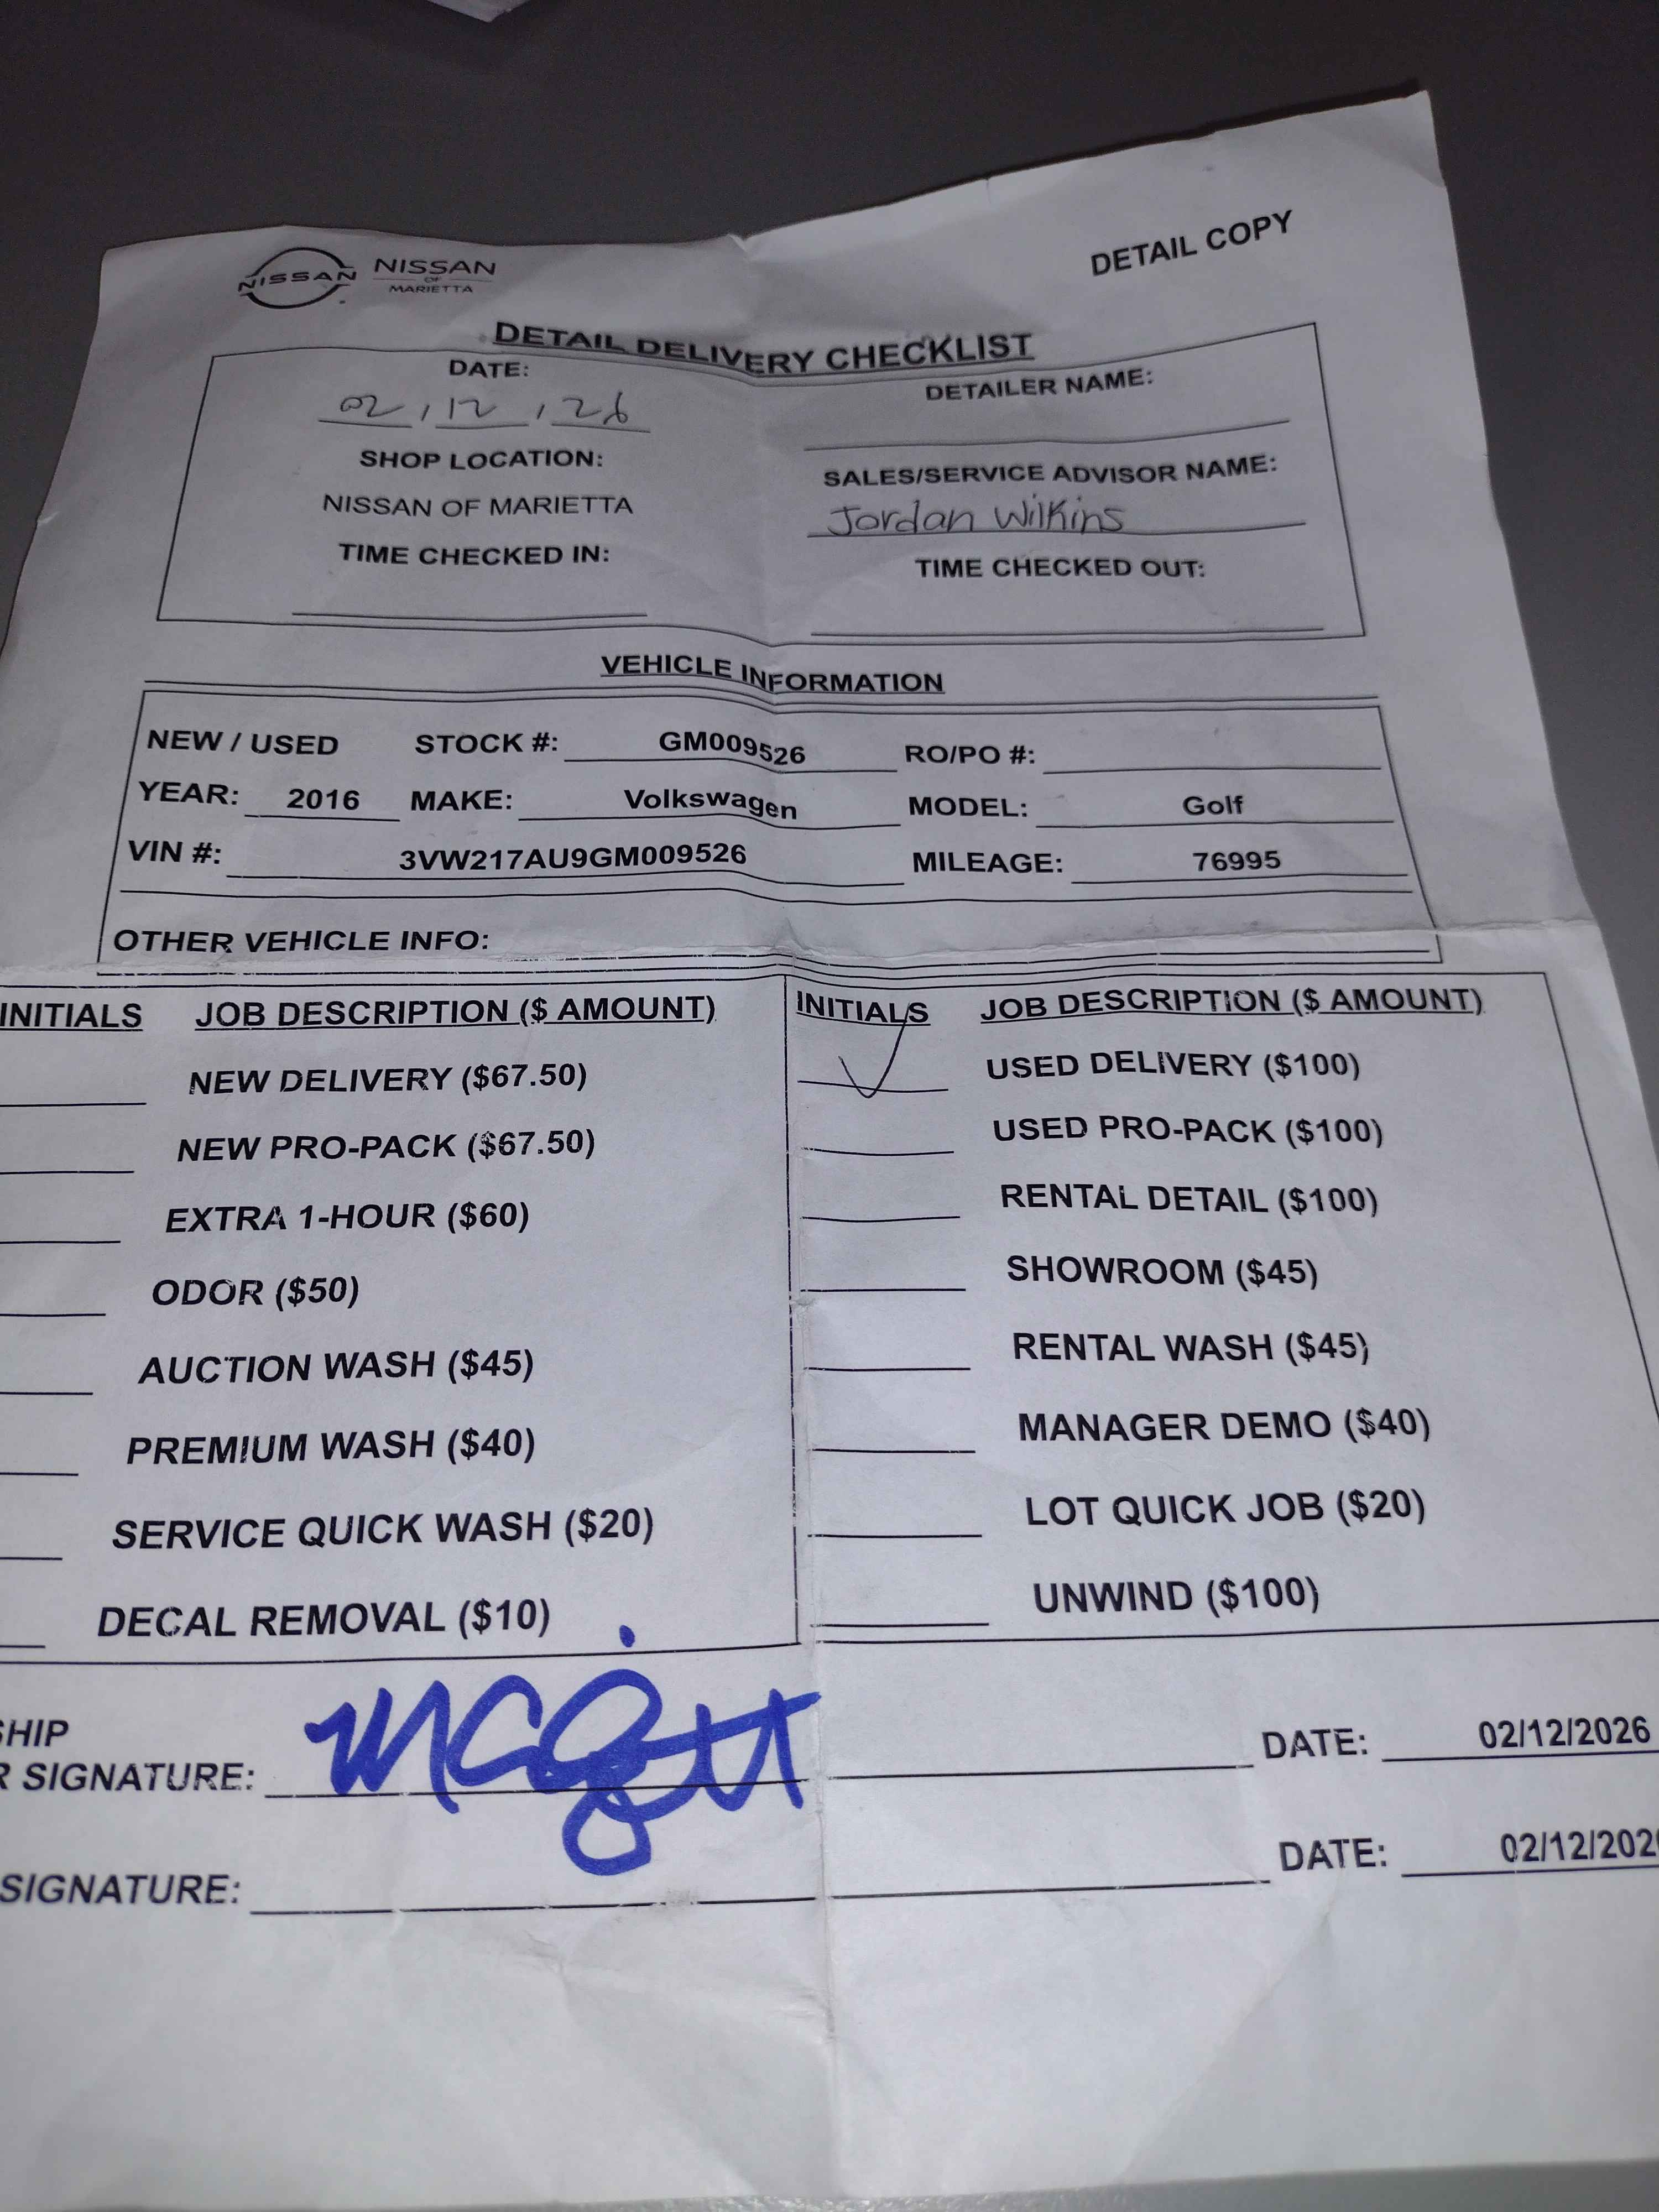 NISSAN NISSAN OF MARIETTA
DETAIL COPY
DETAIL DELIVERY CHECKLIST
DATE: DETAILER NAME:
02, 12, 26
SHOP LOCATION: SALES/SERVICE ADVISOR NAME:
NISSAN OF MARIETTA Jordan Wilkins
TIME CHECKED IN: TIME CHECKED OUT:
VEHICLE INFORMATION
NEW / USED STOCK #: GM009526 RO/PO #:
YEAR: 2016 MAKE: Volkswagen MODEL: Golf
VIN #: 3VW217AU9GM009526 MILEAGE: 76995
OTHER VEHICLE INFO:
INITIALS JOB DESCRIPTION ($ AMOUNT) INITIALS JOB DESCRIPTION ($ AMOUNT)
NEW DELIVERY ($67.50) ✓ USED DELIVERY ($100)
NEW PRO-PACK ($67.50) USED PRO-PACK ($100)
EXTRA 1-HOUR ($60) RENTAL DETAIL ($100)
ODOR ($50) SHOWROOM ($45)
AUCTION WASH ($45) RENTAL WASH ($45)
PREMIUM WASH ($40) MANAGER DEMO ($40)
SERVICE QUICK WASH ($20) LOT QUICK JOB ($20)
DECAL REMOVAL ($10) UNWIND ($100)
SHIP
R SIGNATURE: DATE: 02/12/2026
SIGNATURE: DATE: 02/12/202